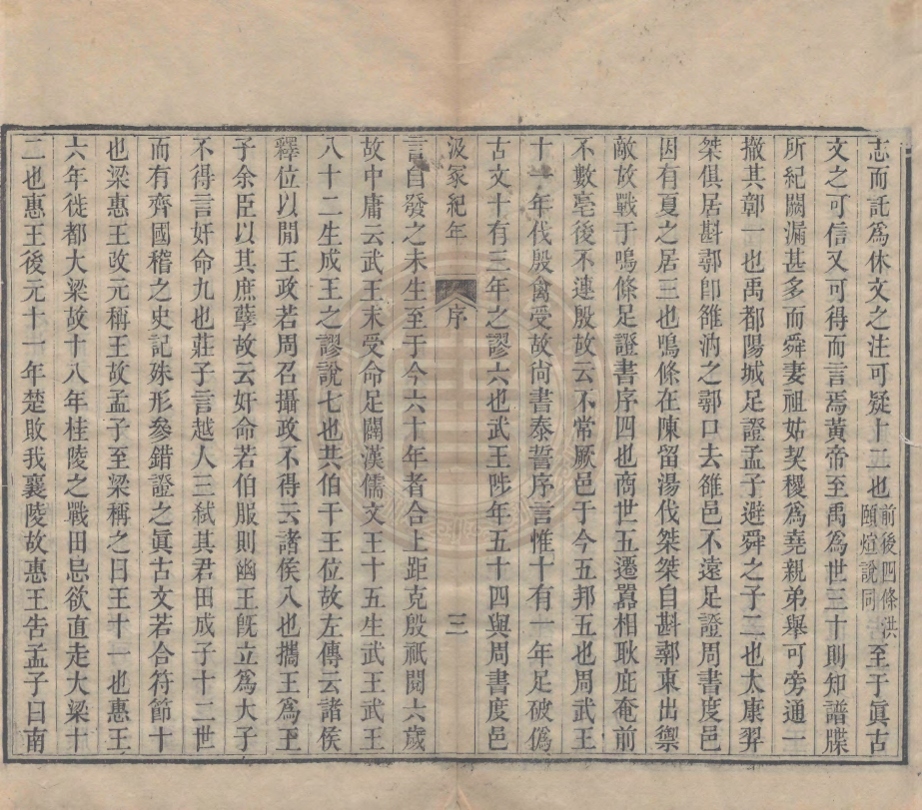 志而託爲休文之注可疑十二也前後四條洪頤煊說同至于眞古
文之可信又可得而言焉黃帝至禹爲世三十則知譜牒
所紀闕漏甚多而舜妻祖姑契稷爲堯親弟舉可旁通一
撤其鄣一也禹都陽城足證孟子避舜之子二也太康羿
桀俱居斟鄩卽雒汭之鄩口去雒邑不遠足證周書度邑
因有夏之居三也鳴條在陳留湯伐桀桀自斟鄩東出禦
敵故戰于鳴條足證書序四也商世五遷囂相耿庇奄前
不數亳後不連殷故云不常厥邑于今五邦五也周武王
十一年伐殷禽受故尙書泰誓序言惟十有一年足破僞
古文十有三年之謬六也武王陟年五十四與周書度邑
汲冢紀年 序 三
言自發之未生至于今六十年者合上距克殷祇閱六歲
故中庸云武王末受命足闢漢儒文王十五生武王武王
八十二生成王之謬說七也共伯干王位故左傳云諸侯
釋位以閒王政若周召攝政不得云諸侯八也攜王爲王
子余臣以其庶孽故云奸命若伯服則幽王旣立爲大子
不得言奸命九也莊子言越人三弒其君田成子十二世
而有齊國稽之史記殊形參錯證之眞古文若合符節十
也梁惠王改元稱王故孟子至梁稱之曰王十一也惠王
六年徙都大梁故十八年桂陵之戰田忌欲直走大梁十
二也惠王後元十一年楚敗我襄陵故惠王告孟子曰南